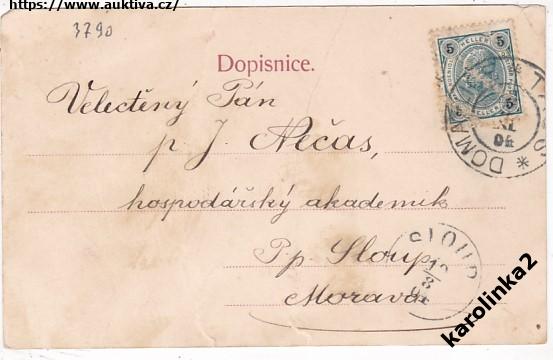 https://www.auktiva.cz/
3790
Dopisnice.
5 HELLER 5
5 5
Velectěný Pán
p. J. Nečas,
hospodářský akademik
P.p. Sloup
Morava
SLOUP
karolinka2